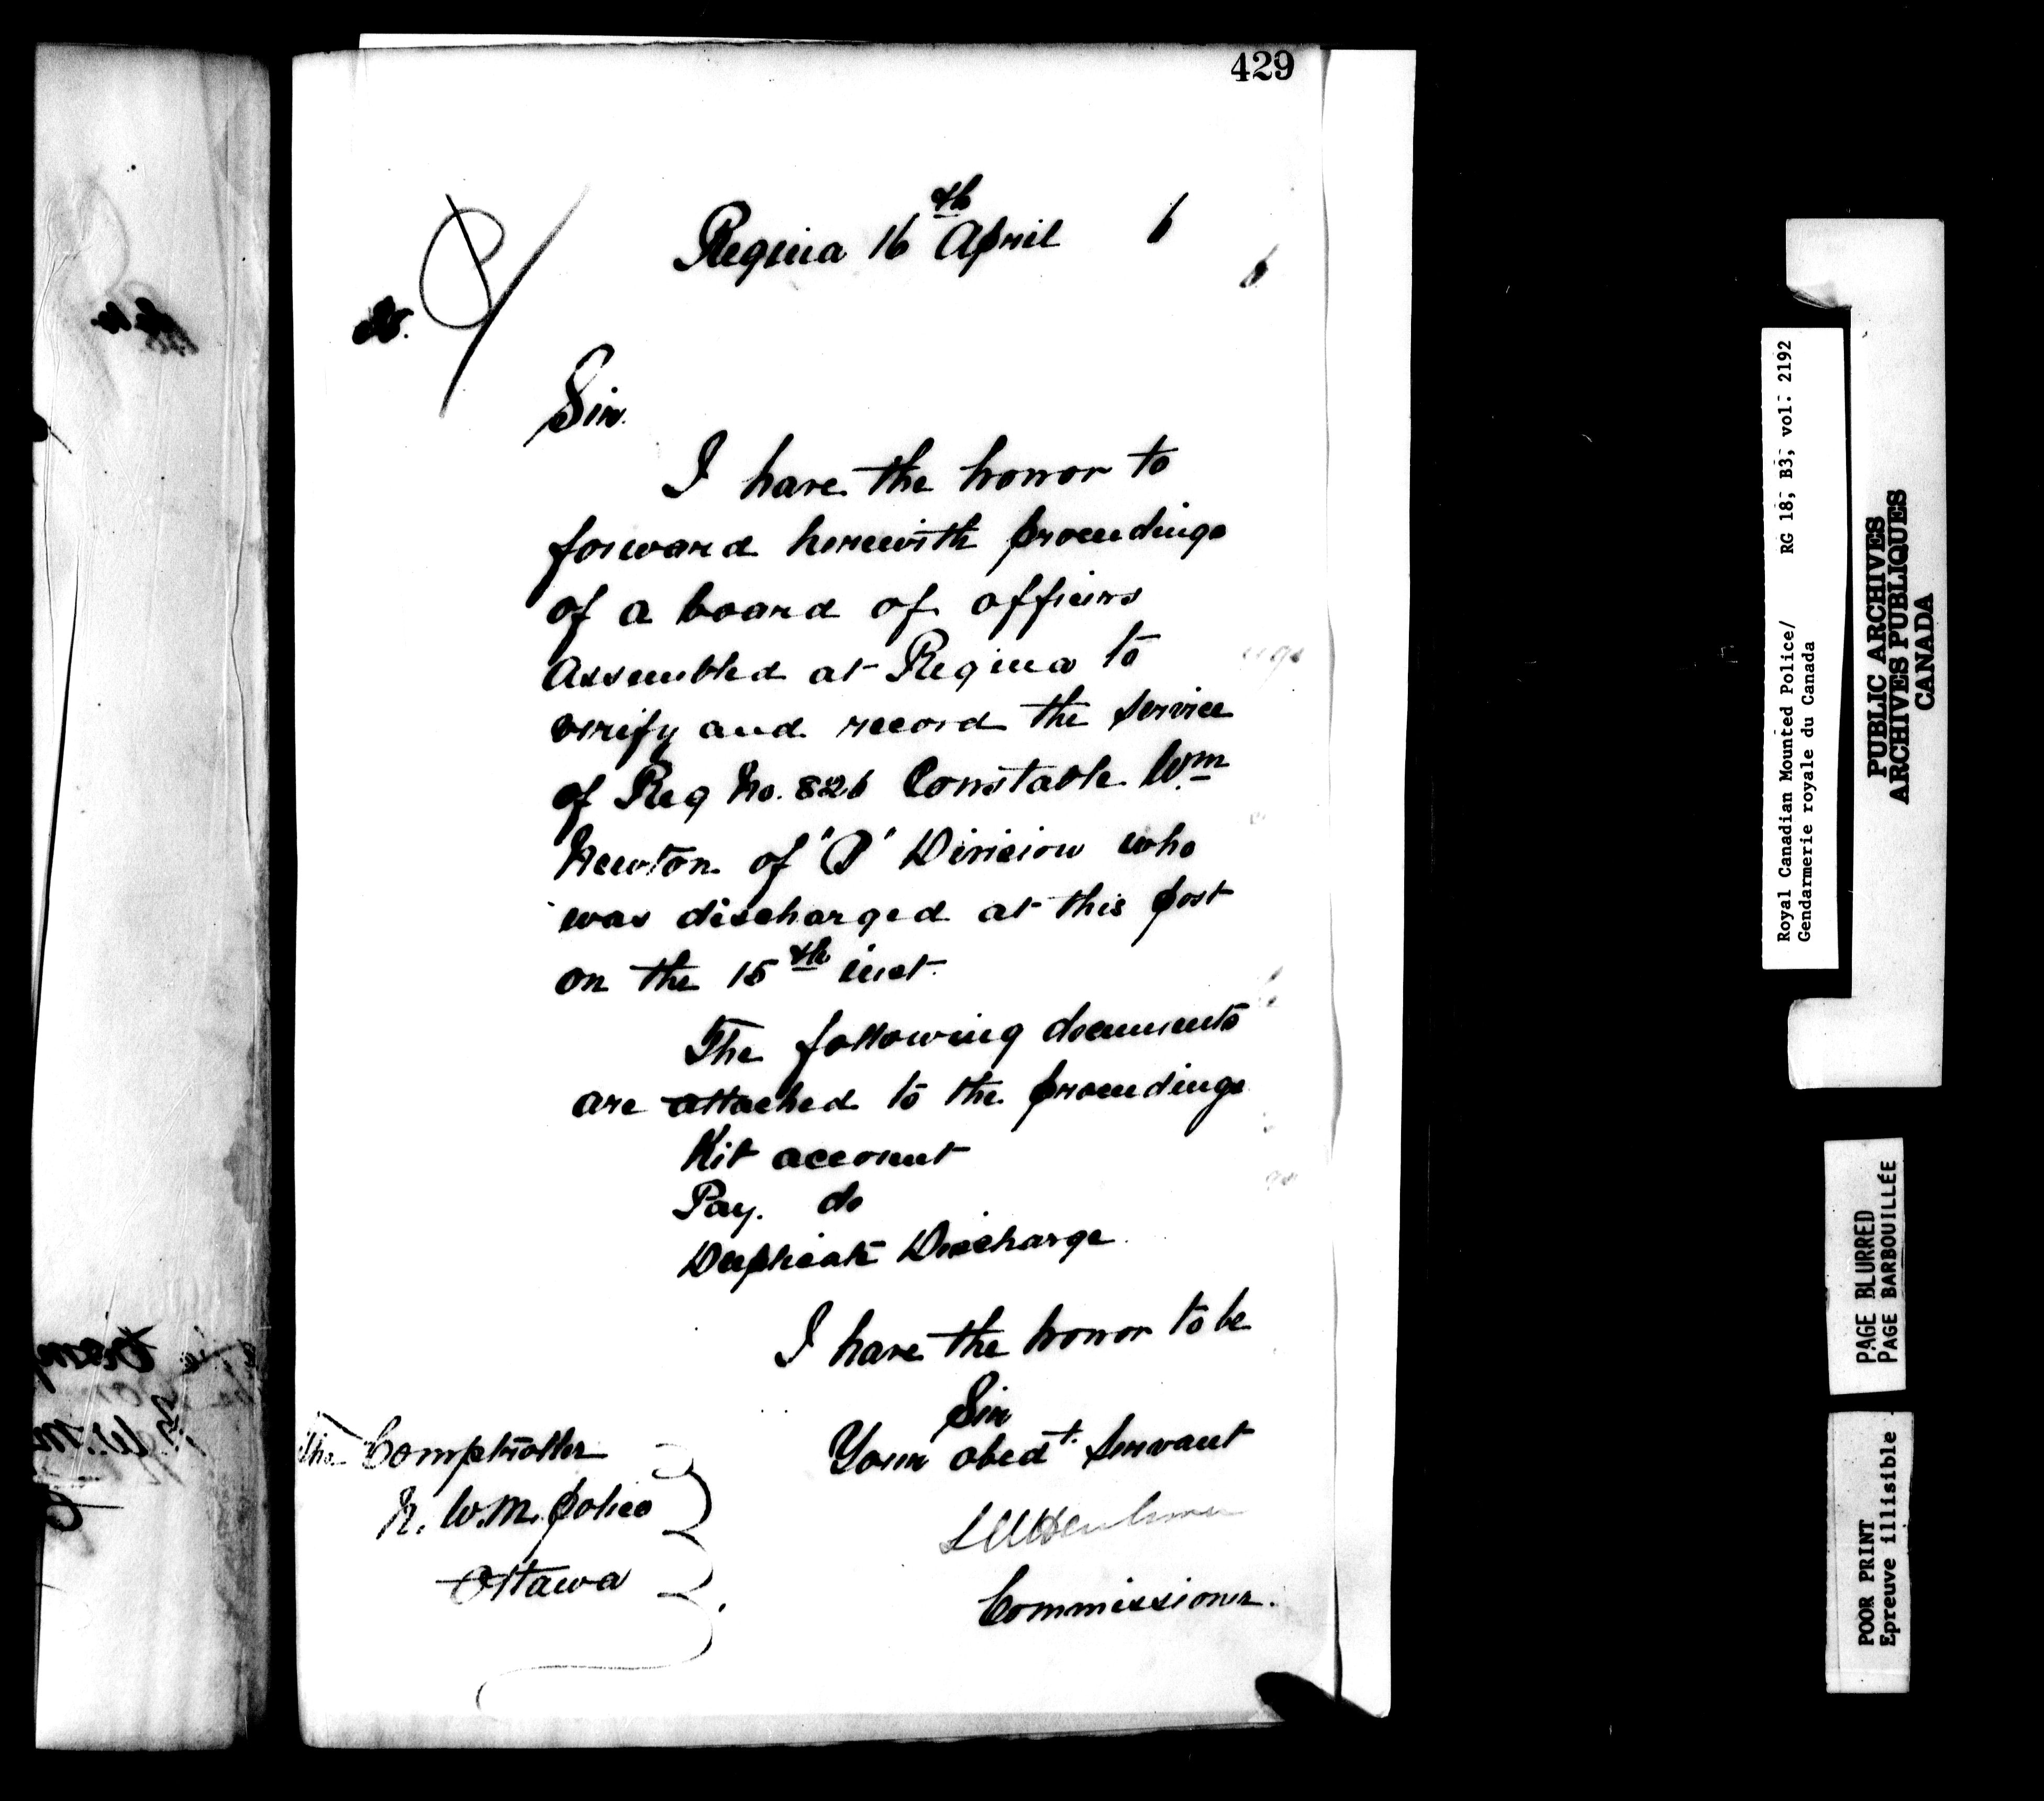 429
Regina 16th April 6
Sir.
I have the honor to
forward herewith proceedings
of a board of officers
Assembled at Regina to
verify and record the service
of Reg No. 826 Constable Wm
Newton of 'B' Division who
was discharged at this post
on the 15th inst.
The following documents
are attached to the proceedings
Kit account
Pay. do
Duplicate Discharge.
I have the honor to be
Sir
Your obedt. Servant
Commissioner.
The Comptroller
N. W. M. Police
Ottawa
Royal Canadian Mounted Police/ RG 18, B3, vol. 2192
Gendarmerie royale du Canada
PUBLIC ARCHIVES
ARCHIVES PUBLIQUES
CANADA
PAGE BLURRED
PAGE BARBOUILLÉE
POOR PRINT
Epreuve illisible